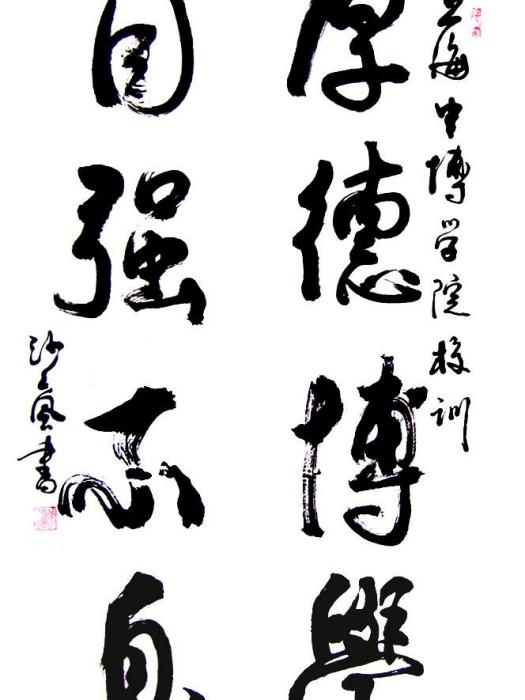 上海中博学院校训
厚德博學
自强不息
沙風書